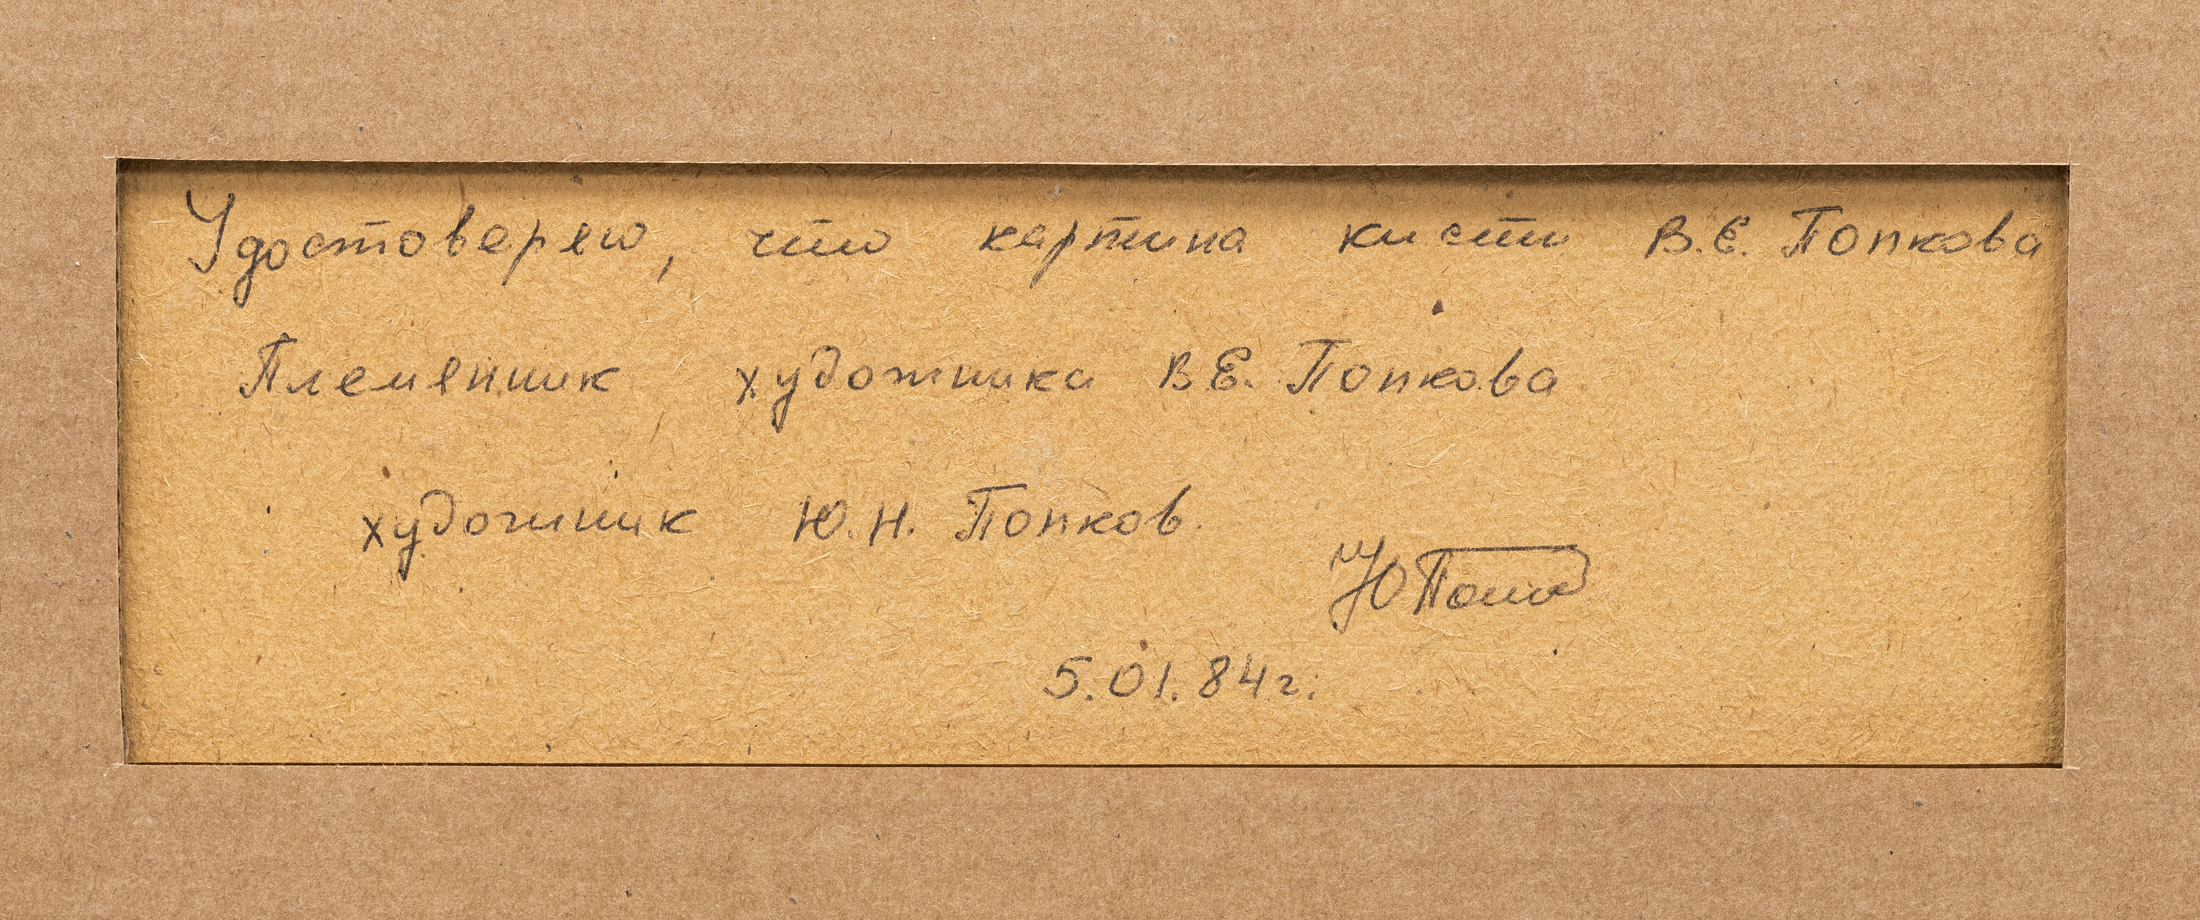 Удостоверяю, что картина кисти В.Е. Попкова
Племенник художника В.Е. Попкова
художник Ю.Н. Попков.
5.01.84г.